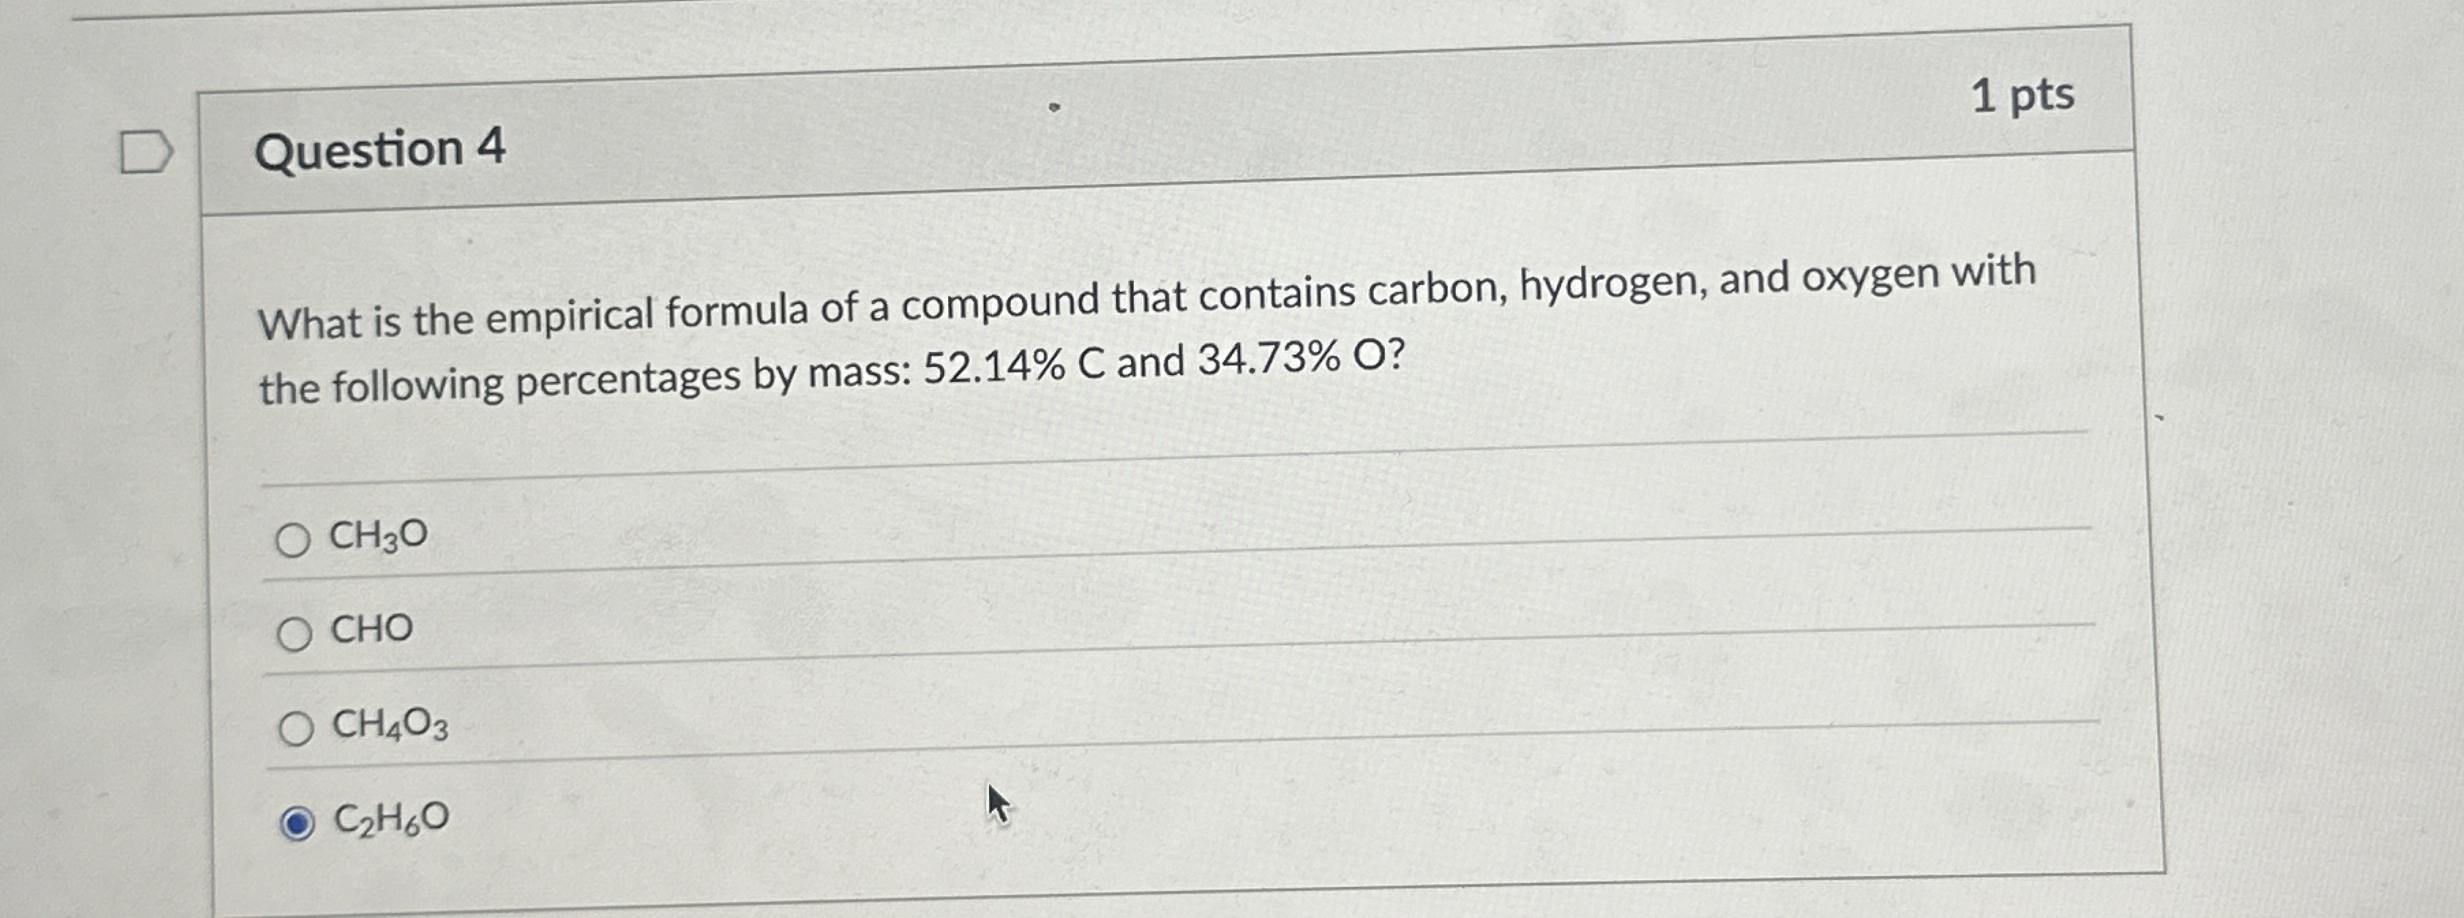 Question 4
1 pts
What is the empirical formula of a compound that contains carbon, hydrogen, and oxygen with
the following percentages by mass: 52.14% C and 34.73% O?
CH₃O
CHO
CH₄O₃
C₂H₆O